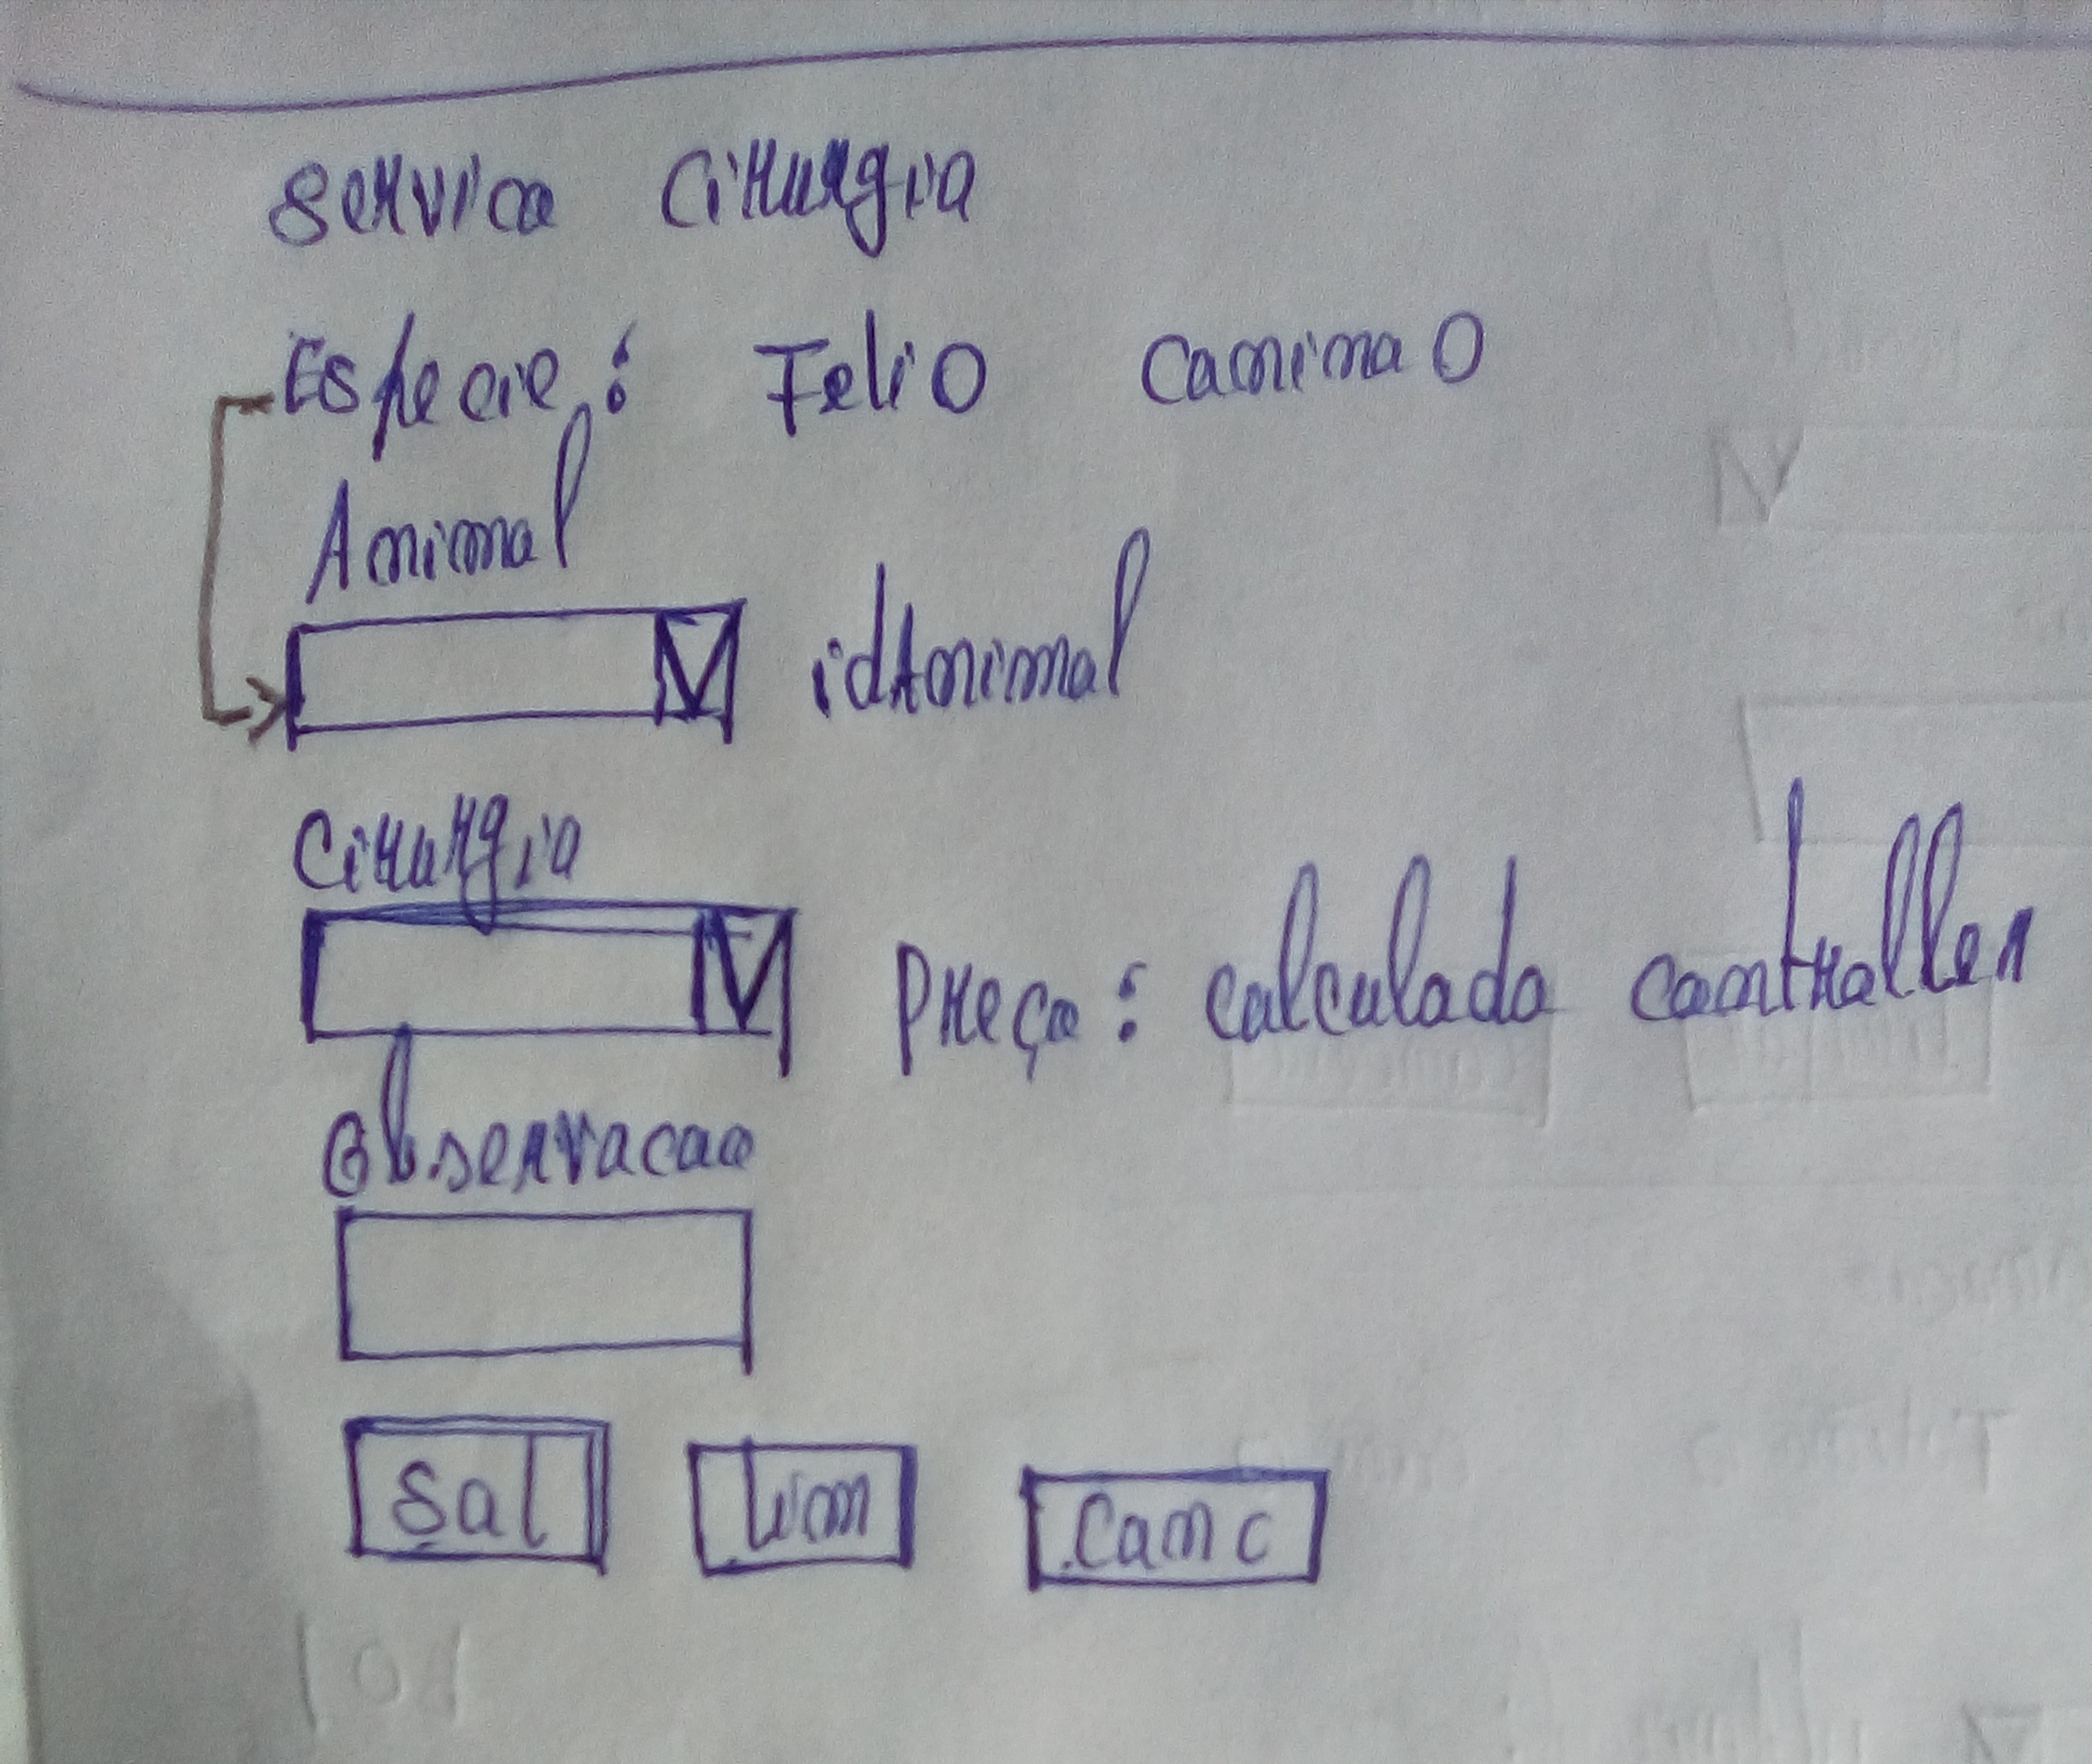 Servico Cirurgia
Especie: Feli O Canina O
Animal
idAnimal
Cirurgia
Preço: calculado controller
Observacao
Sal Lim Canc